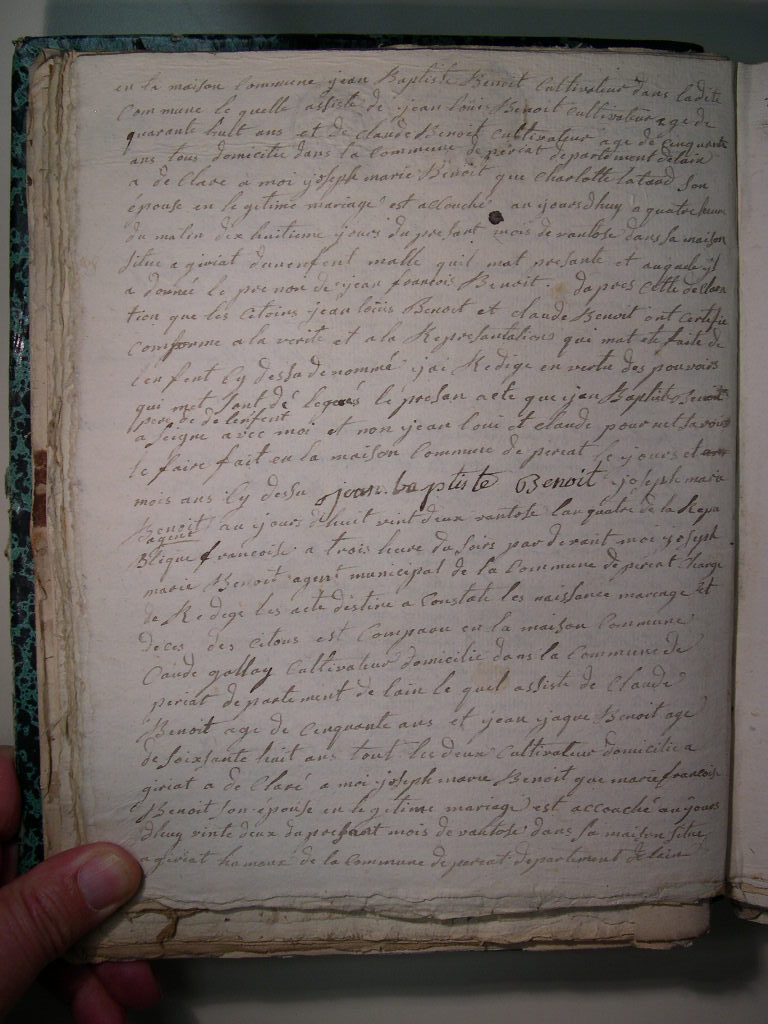 en la maison Commune jean Baptiste Benoit Cultivateur dans ladite
Commune le quelle assiste de jean louis Benoit cultivateur age de
quarante huit ans et de Claude Benoit Cultivateur age de Cinquante
ans tous domicilie dans la Commune de periat departement de lain
a de Clare a moi joseph marie Benoit que Charlotte lataud son
épouse en le gitime mariage est accouché au jourdhuy a quatre heure
du matin dix huitieme jours du presant mois de vantose dans sa maison
situe a giriat dun enfent malle quil mat presante et auquele yl
a donnée le pre non de jean francois Benoit dapres cette declara
tion que les Citoins jean louis Benoit et claude Benoit ont Certifie
Comforme a la verite et a la Representation qui mat ete faite de
len fent Cy dessu denommé jae Redige en vertu des pouvoirs
qui met sont dé legués le présan acte que jean Baptiste Benoit
pere de lenfent
a seigne avec moi et non jean loui et claude pour net savoir
le faire fait en la maison Commune de periat le jours et
mois ans Cy dessu jean baptiste Benoit joseph marie
Benoit
agent
au jours dhuit vint deux vantose lan quatre de la Repu
Blique francoise a trois heure du soirs par devant moi joseph
marie Benoit agent municipal de la Commune de periat Charge
de Redige les acte déstine a Constate les naissance mareage et
deces des Citous est Comparu en la maison Commune
Caude gollay Cultivateur domicilie dans la Commune de
periat departement de lain le quel assiste de Claude
Benoit age de Cinquante ans et jean jaque Benoit age
de soixsante huit ans tout les deux Cultivateur domicilie a
giriat a de Claré a moi joseph marie Benoit que marie francoise
Benoit son épouse en le gitime mariage est accouché au jours
dhuy vinte deux du presant mois de vantose dans sa maison situe
a giriat hamaux de la Commune de periat departiment de lain